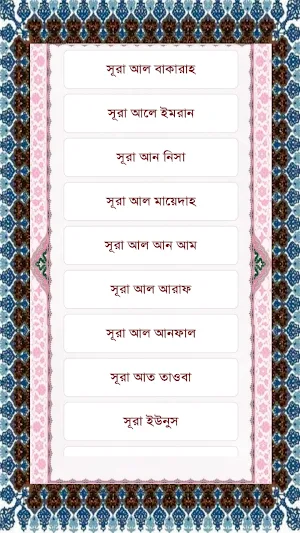 সূরা আল বাকারাহ
সূরা আলে ইমরান
সূরা আন নিসা
সূরা আল মায়েদাহ
সূরা আল আন আম
সূরা আল আরাফ
সূরা আল আনফাল
সূরা আত তাওবা
সূরা ইউনুস